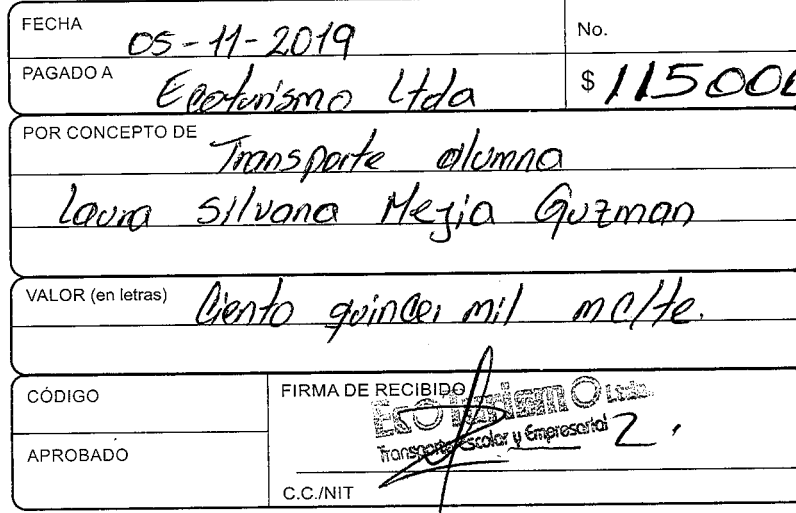 FECHA 05-11-2019 No.
PAGADO A Ecoturismo Ltda $ 115000
POR CONCEPTO DE Transporte alumna
Laura Silvana Mejia Guzman
VALOR (en letras) Ciento quince mil mc/te.
CÓDIGO FIRMA DE RECIBIDO
EcoTurismo Ltda.
Transporte Escolar y Empresarial 2.
APROBADO
C.C./NIT